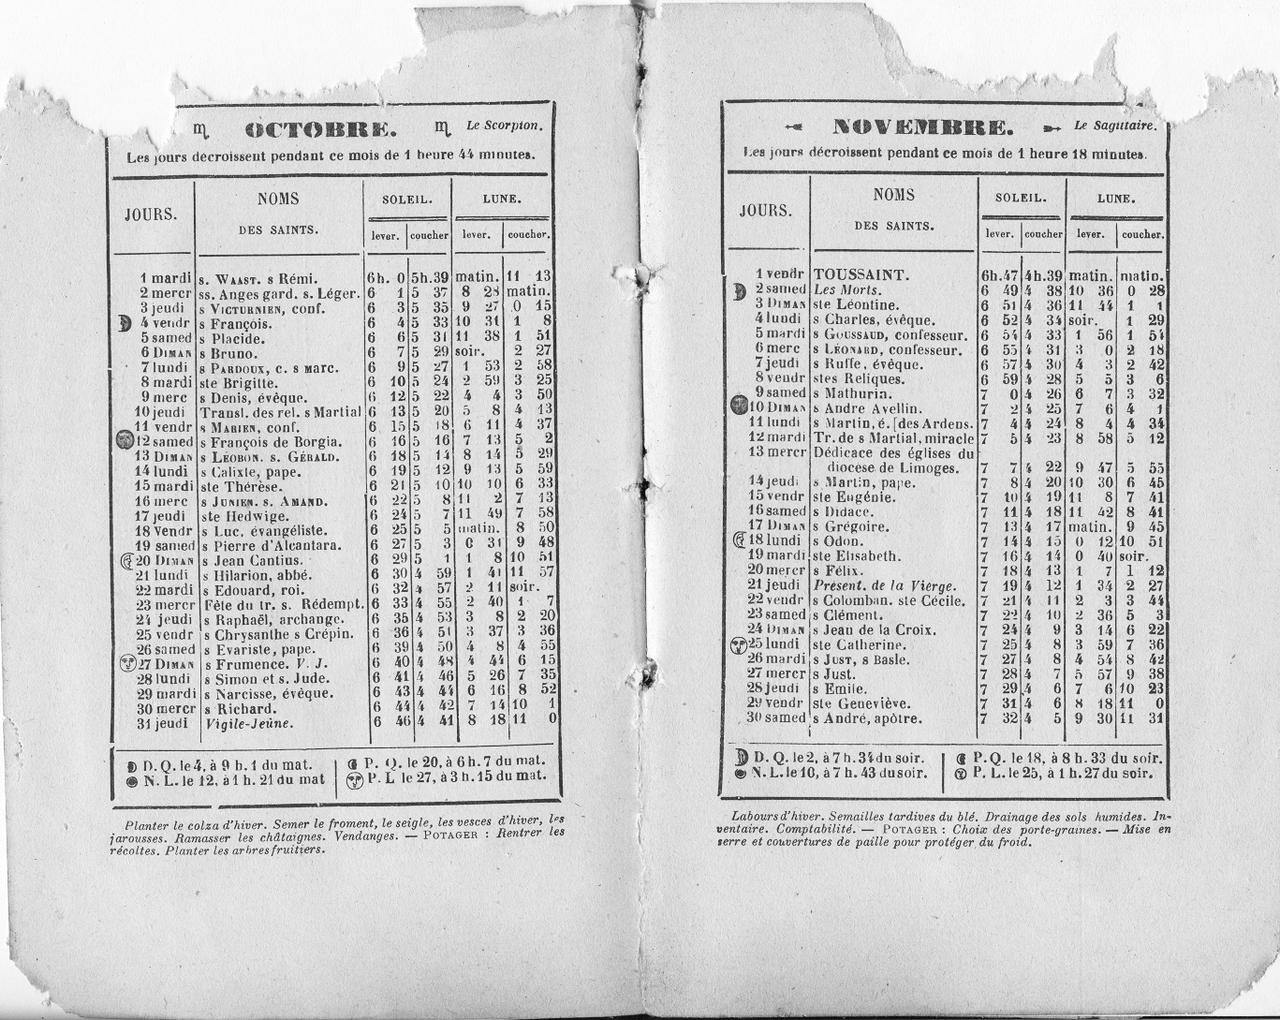 ♏ OCTOBRE. ♏ Le Scorpion.
Les jours décroissent pendant ce mois de 1 heure 44 minutes.
JOURS. NOMS DES SAINTS. SOLEIL. LUNE.
lever. coucher lever. coucher.
1 mardi s. WAAST. s Rémi. 6h. 0 5h.39 matin. 11 13
2 mercr ss. Anges gard. s. Léger. 6 1 5 37 8 28 matin.
3 jeudi s VICTURNIEN, conf. 6 3 5 35 9 27 0 15
4 vendr s François. 6 4 5 33 10 31 1 8
5 samed s Placide. 6 6 5 31 11 38 1 51
6 DIMAN s Bruno. 6 7 5 29 soir. 2 27
7 lundi s PARDOUX, c. s MARC. 6 9 5 27 1 53 2 58
8 mardi ste Brigitte. 6 10 5 24 2 59 3 25
9 merc s Denis, évêque. 6 12 5 22 4 4 3 50
10 jeudi Transl. des rel. s Martial 6 13 5 20 5 8 4 13
11 vendr s MARIEN, conf. 6 15 5 18 6 11 4 37
12 samed s François de Borgia. 6 16 5 16 7 13 5 2
13 DIMAN s LÉOBON. s. GÉRALD. 6 18 5 14 8 14 5 29
14 lundi s Calixte, pape. 6 19 5 12 9 13 5 59
15 mardi ste Thérèse. 6 21 5 10 10 10 6 33
16 merc s JUNIEN. s. AMAND. 6 22 5 8 11 2 7 13
17 jeudi ste Hedwige. 6 24 5 7 11 49 7 58
18 Vendr s Luc, évangéliste. 6 25 5 5 matin. 8 50
19 samed s Pierre d'Alcantara. 6 27 5 3 0 31 9 48
20 DIMAN s Jean Cantius. 6 29 5 1 1 8 10 51
21 lundi s Hilarion, abbé. 6 30 4 59 1 41 11 57
22 mardi s Edouard, roi. 6 32 4 57 2 11 soir.
23 mercr Fête du tr. s. Rédempt. 6 33 4 55 2 40 1 7
24 jeudi s Raphaël, archange. 6 35 4 53 3 8 2 20
25 vendr s Chrysanthe s Crépin. 6 36 4 51 3 37 3 36
26 samed s Evariste, pape. 6 39 4 50 4 8 4 55
27 DIMAN s Frumence. V. J. 6 40 4 48 4 44 6 15
28 lundi s Simon et s. Jude. 6 41 4 46 5 26 7 35
29 mardi s Narcisse, évêque. 6 43 4 44 6 16 8 52
30 mercr s Richard. 6 44 4 42 7 14 10 1
31 jeudi Vigile-Jeûne. 6 46 4 41 8 18 11 0
D. Q. le 4, à 9 h. 1 du mat. P. Q. le 20, à 6 h. 7 du mat.
N. L. le 12, à 1 h. 21 du mat P. L le 27, à 3 h. 15 du mat.
Planter le colza d'hiver. Semer le froment, le seigle, les vesces d'hiver, les
jarousses. Ramasser les châtaignes. Vendanges. — POTAGER : Rentrer les
récoltes. Planter les arbres fruitiers.
NOVEMBRE. Le Sagittaire.
Les jours décroissent pendant ce mois de 1 heure 18 minutes.
JOURS. NOMS DES SAINTS. SOLEIL. LUNE.
lever. coucher lever. coucher.
1 vendr TOUSSAINT. 6h.47 4h.39 matin. matin.
2 samed Les Morts. 6 49 4 38 10 36 0 28
3 DIMAN ste Léontine. 6 51 4 36 11 44 1 1
4 lundi s Charles, évêque. 6 52 4 34 soir. 1 29
5 mardi s GOUSSAUD, confesseur. 6 54 4 33 1 56 1 54
6 merc s LÉONARD, confesseur. 6 55 4 31 3 0 2 18
7 jeudi s Ruffe, évêque. 6 57 4 30 4 3 2 42
8 vendr stes Reliques. 6 59 4 28 5 5 3 6
9 samed s Mathurin. 7 0 4 26 6 7 3 32
10 DIMAN s Andre Avellin. 7 2 4 25 7 6 4 1
11 lundi s Martin, é. [des Ardens. 7 4 4 24 8 4 4 34
12 mardi Tr. de s Martial, miracle 7 5 4 23 8 58 5 12
13 mercr Dédicace des églises du
diocèse de Limoges. 7 7 4 22 9 47 5 55
14 jeudi s Martin, pape. 7 8 4 20 10 30 6 45
15 vendr ste Eugénie. 7 10 4 19 11 8 7 41
16 samed s Didace. 7 11 4 18 11 42 8 41
17 DIMAN s Grégoire. 7 13 4 17 matin. 9 45
18 lundi s Odon. 7 14 4 15 0 12 10 51
19 mardi ste Elisabeth. 7 16 4 14 0 40 soir.
20 mercr s Félix. 7 18 4 13 1 7 1 12
21 jeudi Présent. de la Vierge. 7 19 4 12 1 34 2 27
22 vendr s Colomban. ste Cécile. 7 21 4 11 2 3 3 44
23 samed s Clément. 7 22 4 10 2 36 5 3
24 DIMAN s Jean de la Croix. 7 24 4 9 3 14 6 22
25 lundi ste Catherine. 7 25 4 8 3 59 7 36
26 mardi s JUST, s Basle. 7 27 4 8 4 54 8 42
27 mercr s Just. 7 28 4 7 5 57 9 38
28 jeudi s Emile. 7 29 4 6 7 6 10 23
29 vendr ste Geneviève. 7 31 4 6 8 18 11 0
30 samed s André, apôtre. 7 32 4 5 9 30 11 31
D. Q. le 2, à 7 h. 34 du soir. P. Q. le 18, à 8 h. 33 du soir.
N. L. le 10, à 7 h. 43 du soir. P. L. le 25, à 1 h. 27 du soir.
Labours d'hiver. Semailles tardives du blé. Drainage des sols humides. In-
ventaire. Comptabilité. — POTAGER : Choix des porte-graines. — Mise en
serre et couvertures de paille pour protéger du froid.